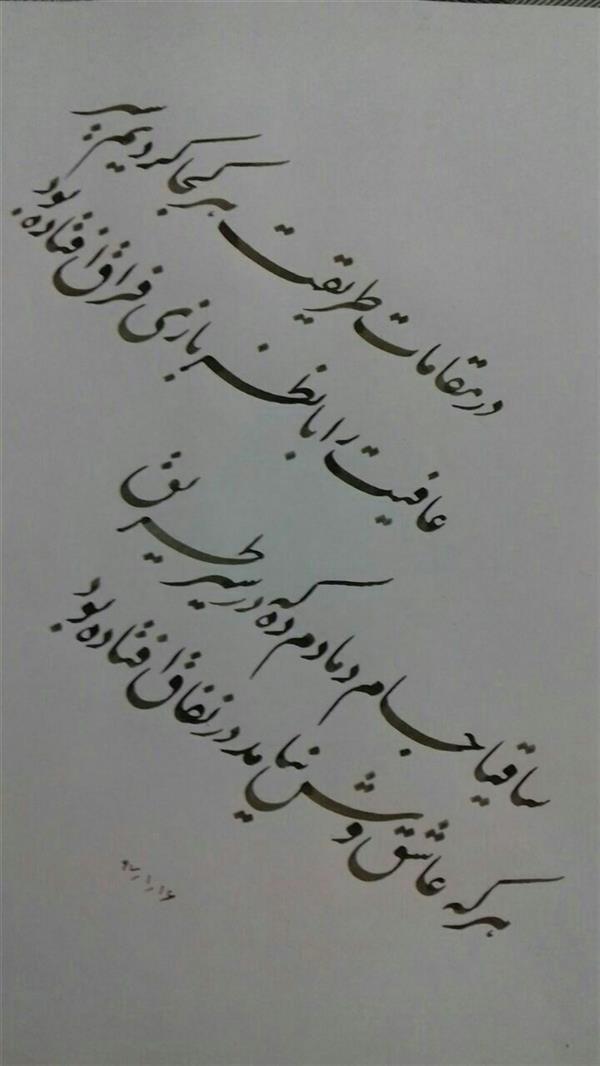 در مقامات طریقت هر کجا کردیم سیر
عافیت را با نظر بازی فراق افتاده بود
ساقیا جام دمادم ده که در سیر طریق
هر که عاشق وش نیامد در نفاق افتاده بود
۹۷٫۱٫۱۶